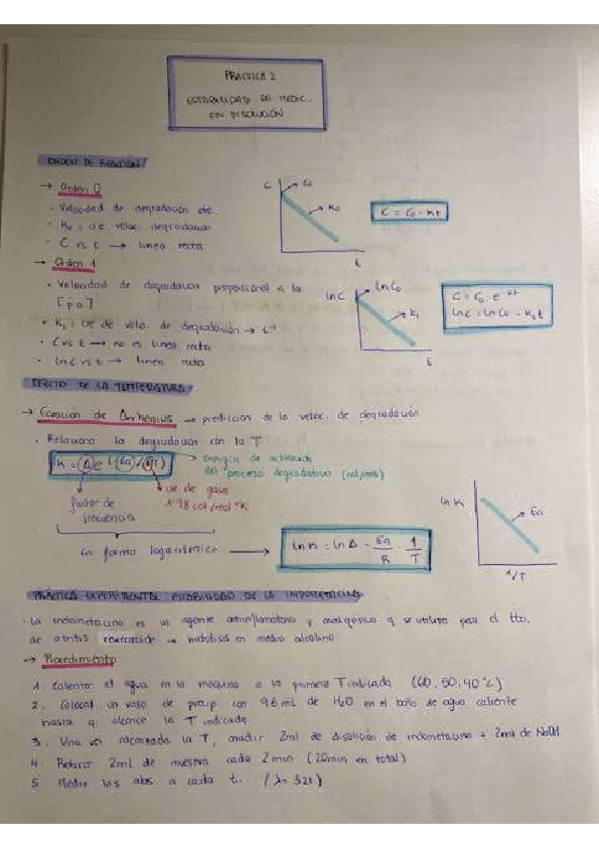 PRÁCTICA 2
ESTABILIDAD DE MEDIC.
EN DISOLUCIÓN
ORDEN DE REACCIÓN:
→ Orden 0
· Velocidad de degradación cte.
· K₀ = cte veloc. degradación
· C vs t → linea recta
C
C₀
K₀
t
C = C₀ - Kt
→ Orden 1
· Velocidad de degradación proporcional a la
[p.a]
· K₁ = cte de velo. de degradación → t⁻¹
· C vs t → no es linea recta
· LnC vs t → linea recta
LnC
LnC₀
K₁
t
C = C₀ · e⁻ᵏᵗ
LnC = LnC₀ - K₁t
EFECTO DE LA TEMPERATURA:
→ Ecuación de Arrhenius → predicción de la veloc. de degradación
· Relaciona la degradación con la T
K = A e (-Ea/RT)
Energía de activación
del proceso degradativo (cal/mol)
cte de gases
1'98 cal/mol °K
factor de
frecuencia
En forma logarítmica →
Ln K = Ln A - Ea/R · 1/T
Ln K
Ea
1/T
PRÁCTICA EXPERIMENTAL: ESTABILIDAD DE LA INDOMETACINA
· La indometacina es un agente antiinflamatorio y analgésico q se utiliza para el tto.
de artritis reumatoide → hidrólisis en medio alcalino.
→ Procedimiento
1. Calentar el agua en la maquina a la primera T indicada (60, 50, 40 °C)
2. Colocal un vaso de precip. con 96 mL de H₂O en el baño de agua caliente
hasta q alcance la T indicada
3. Una vez alcanzada la T, añadir 2ml de disolución de indometacina + 2ml de NaOH
4. Retirar 2mL de muestra cada 2min (20min en total)
5. Medir las abs a cada t. (λ= 321)